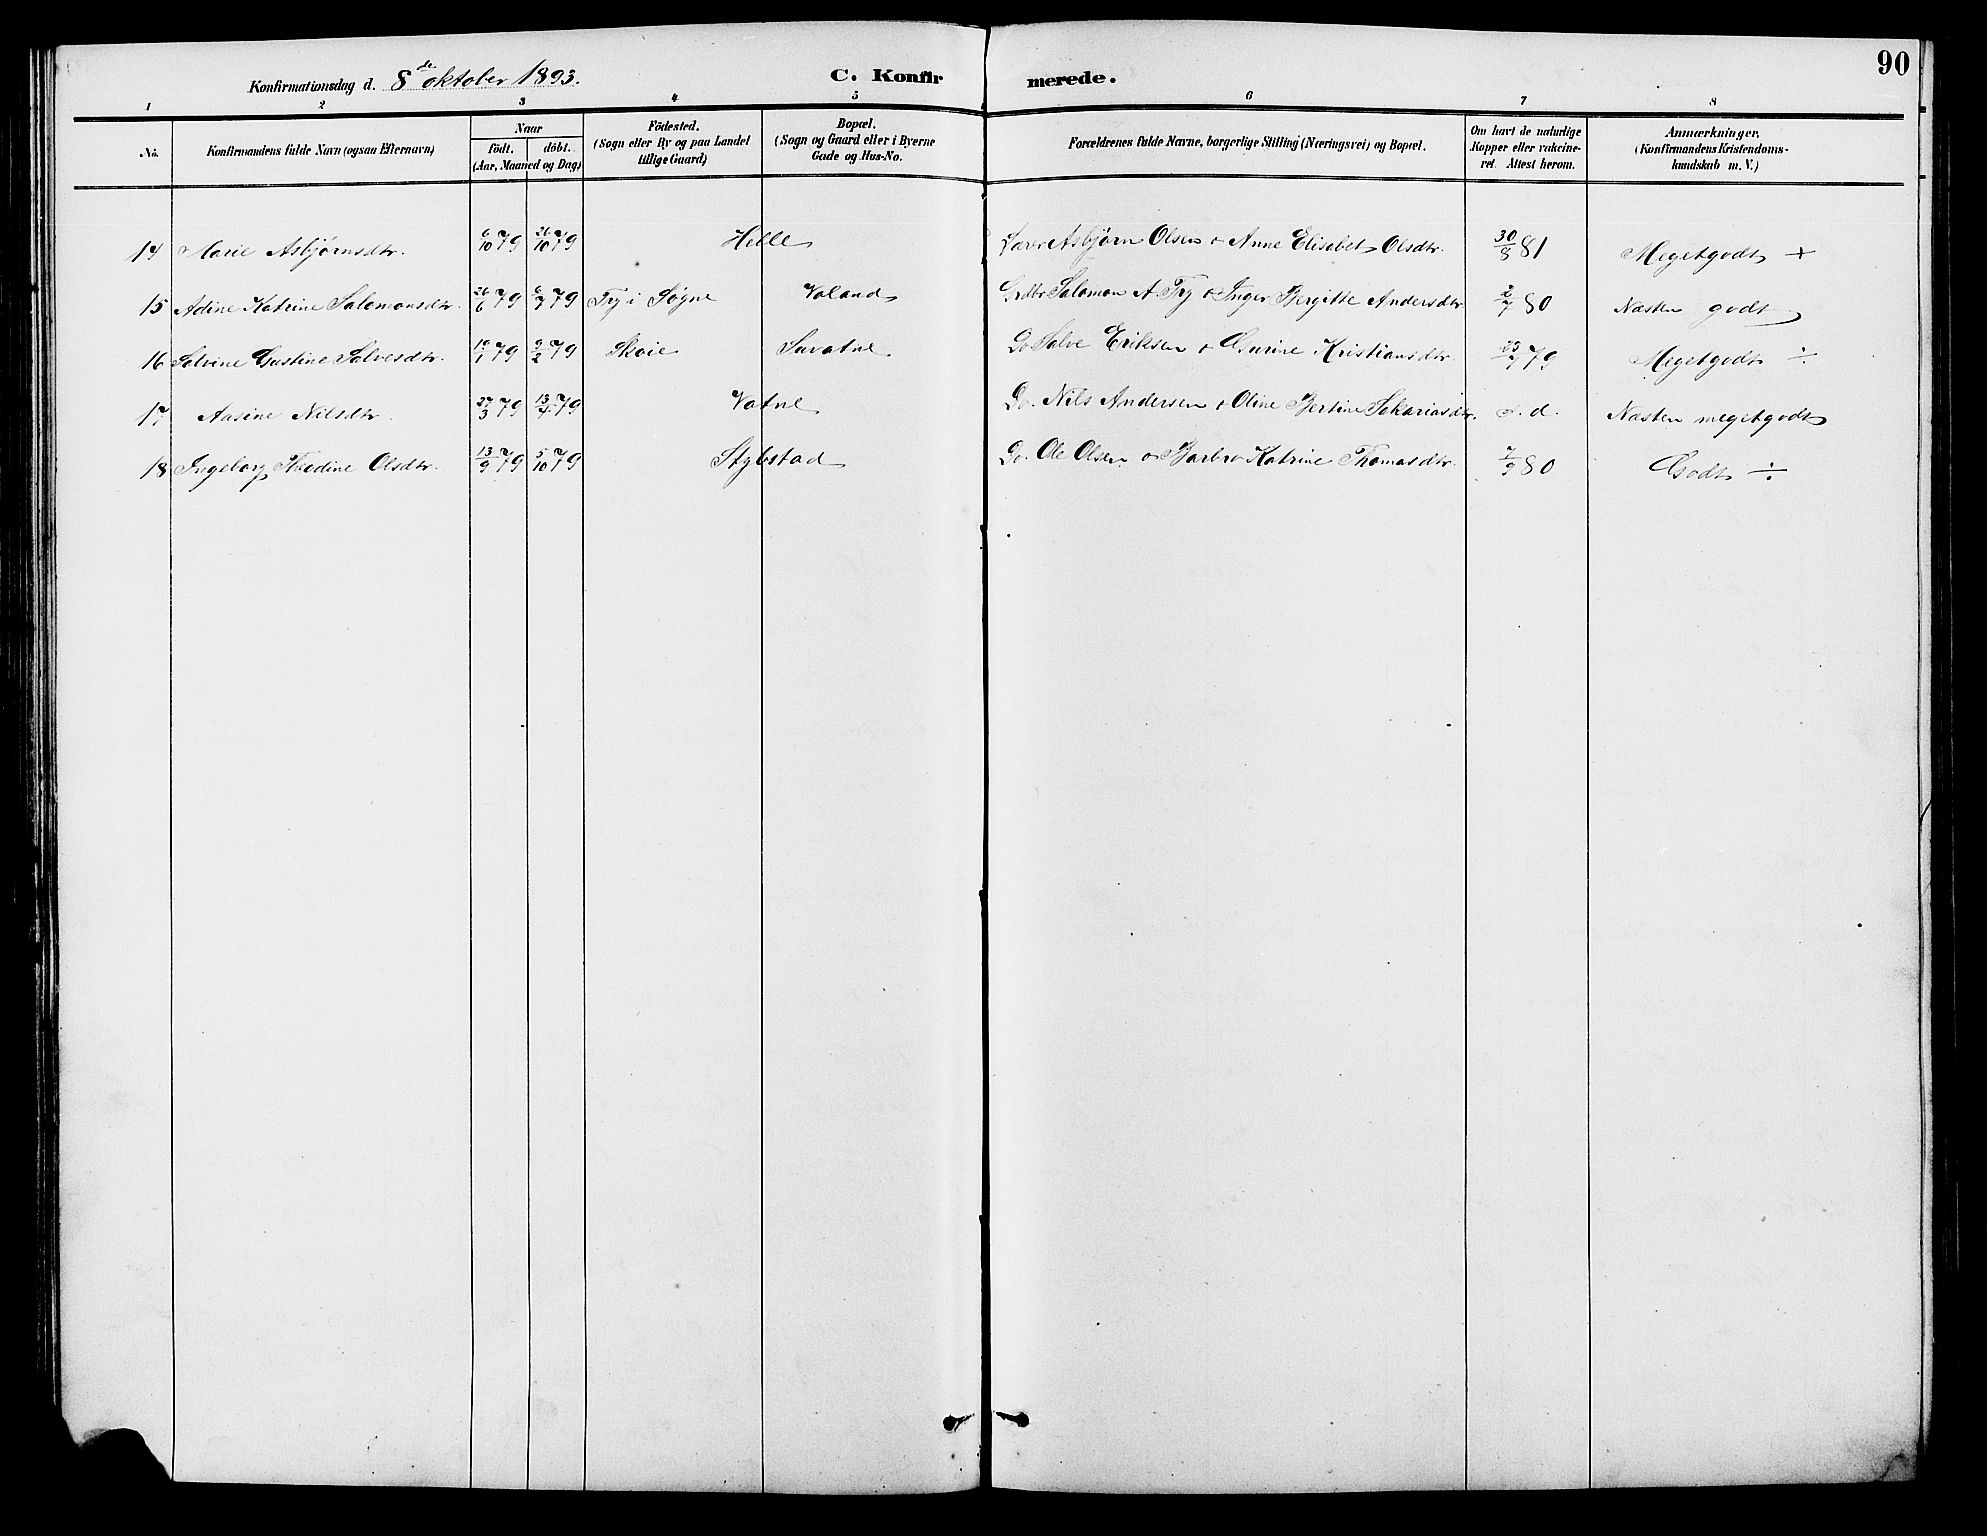 Konfirmationsdag d. 8de oktober 1893.
C. Konfirmerede.
90
1 2 3 4 5 6 7 8
No.
Konfirmandens fulde Navn (ogsaa Efternavn)
Naar
födt. döbt.
(Aar, Maaned og Dag)
Födested.
(Sogn eller By og paa Landet
tillige Gaard)
Bopæl.
(Sogn og Gaard eller i Byerne
Gade og Hus-No.
Forældrenes fulde Navne, borgerlige Stilling (Næringsvei) og Bopæl.
Om havt de naturlige
Kopper eller vakcine-
ret. Attest herom.
Anmærkninger.
(Konfirmandens Kristendoms-
kundskab m. V.)
14 Marie Asbjørnsdtr. 6/10 79 26/10 79 Helle Lærer Asbjørn Olsen o Anne Elisabet Olsdtr. 30/8 81 Megetgodt +
15 Adine Katrine Salomonsdtr. 26/6 79 6/7 79 Try i Søgne Valand Grdbr Salomon A. Try o Inger Bergitte Andersdtr 2/7 80 Næsten godt
16 Salvine Gustine Salvesdtr. 19/1 79 9/2 79 Skoie Do Salve Eriksen o Gurine Kristiansdtr. 23/7 79 Megetgodt ÷
17 Aasine Nilsdtr. 27/3 79 13/4 79 Vatne Do. Nils Andersen o Oline Bertine Sakariasdtr. s. d. Næsten megetgodt
18 Ingeborg Thedine Olsdtr. 13/9 79 5/10 79 Do. Ole Olsen o Barbro Katrine Thomasdtr. 7/9 80 Godt ÷